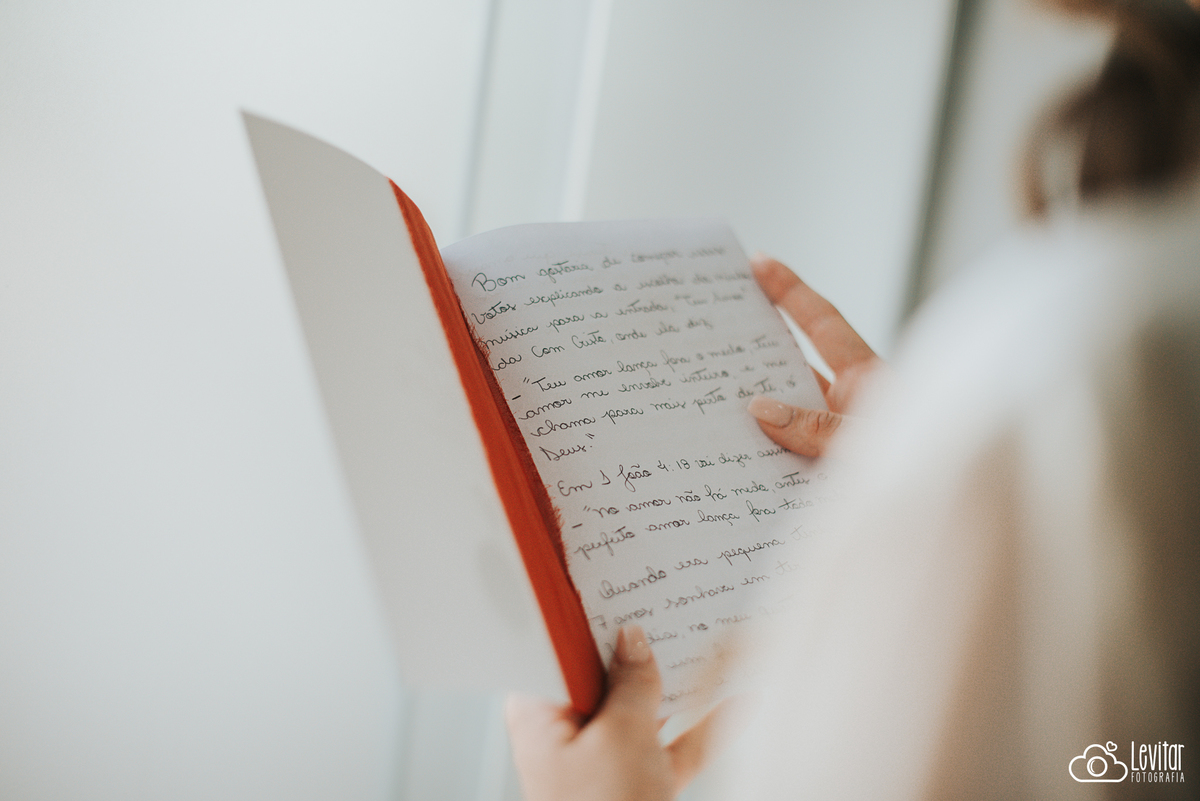 Bom gostaria de começar esses
Votos explicando a escolha da minha
música para a entrada, "Teu
da Com Cristo, onde ela diz,
- "Teu amor lança fora o medo, teu
amor me envolve inteiro, e me
chama para mais perto de ti, ó
Deus."
Em 1 João 4:18 vai dizer assim
- "No amor não há medo, antes o
perfeito amor lança fora todo
Quando era pequena
7 anos sonhava em
dia, no meu
um
Levitar
FOTOGRAFIA